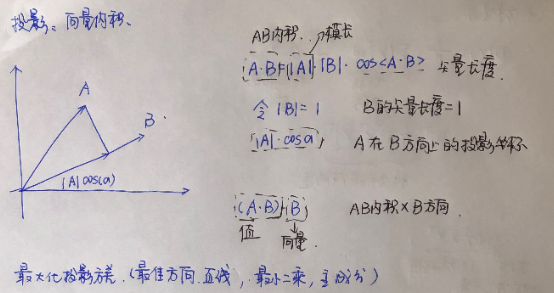 投影：向量内积.
AB内积. 模长
A·B=|A|·|B|·cos<A·B> 矢量长度.
令 |B|=1 B的矢量长度=1
|A|·cos(a) A在B方向上的投影坐标
A
B
|A|cos(a)
(A·B)·B AB内积×B方向.
值 向量.
最大化投影方差.(最佳方向.直线，最小二乘，主成分)